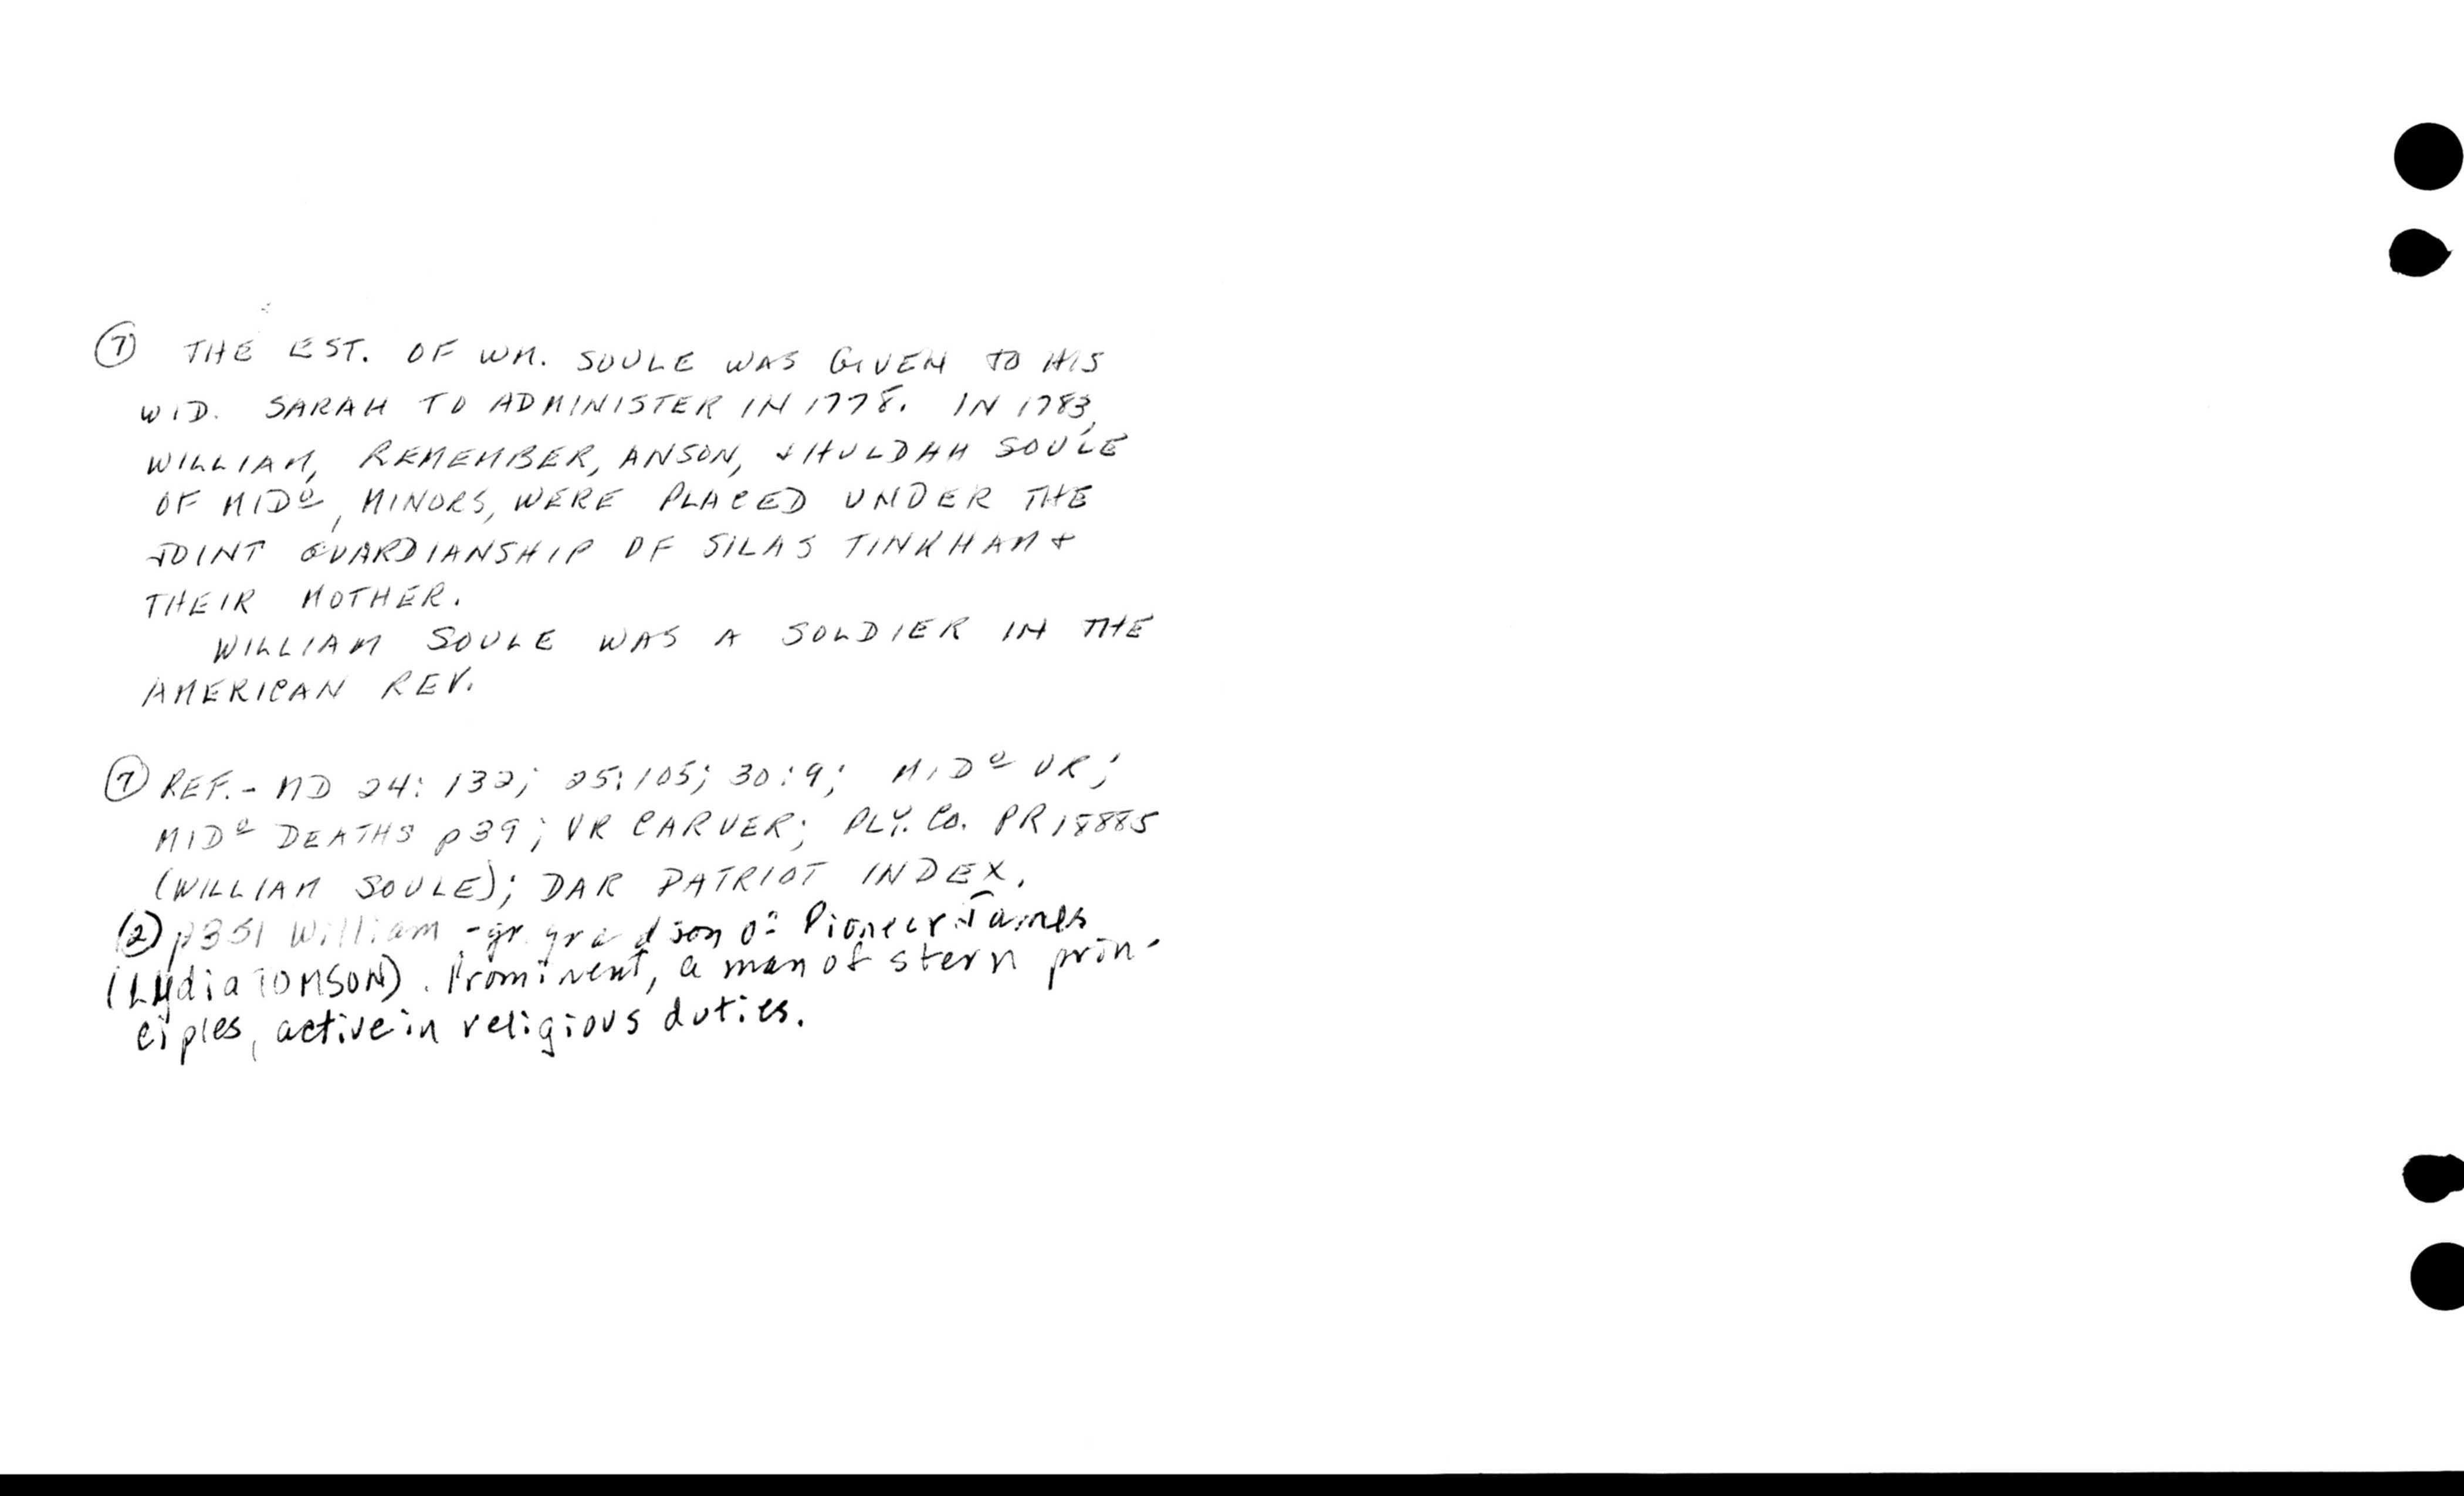 ⑦ THE EST. OF WM. SOULE WAS GIVEN TO HIS
WID. SARAH TO ADMINISTER IN 1778. IN 1783,
WILLIAM, REMEMBER, ANSON, & HULDAH SOULE
OF MIDº, MINORS, WERE PLACED UNDER THE
JOINT GUARDIANSHIP OF SILAS TINKHAM &
THEIR MOTHER.
WILLIAM SOULE WAS A SOLDIER IN THE
AMERICAN REV.
⑦ REF.- MD 24: 132; 25:105; 30:9; MIDº VR;
MIDº DEATHS p39; VR CARVER; PLY. CO. PR 18885
(WILLIAM SOULE); DAR PATRIOT INDEX.
(2) p351 William - gr grandson of Pioneer James
(Lydia TOMSON). Prominent, a man of stern prin-
ciples, active in religious duties.